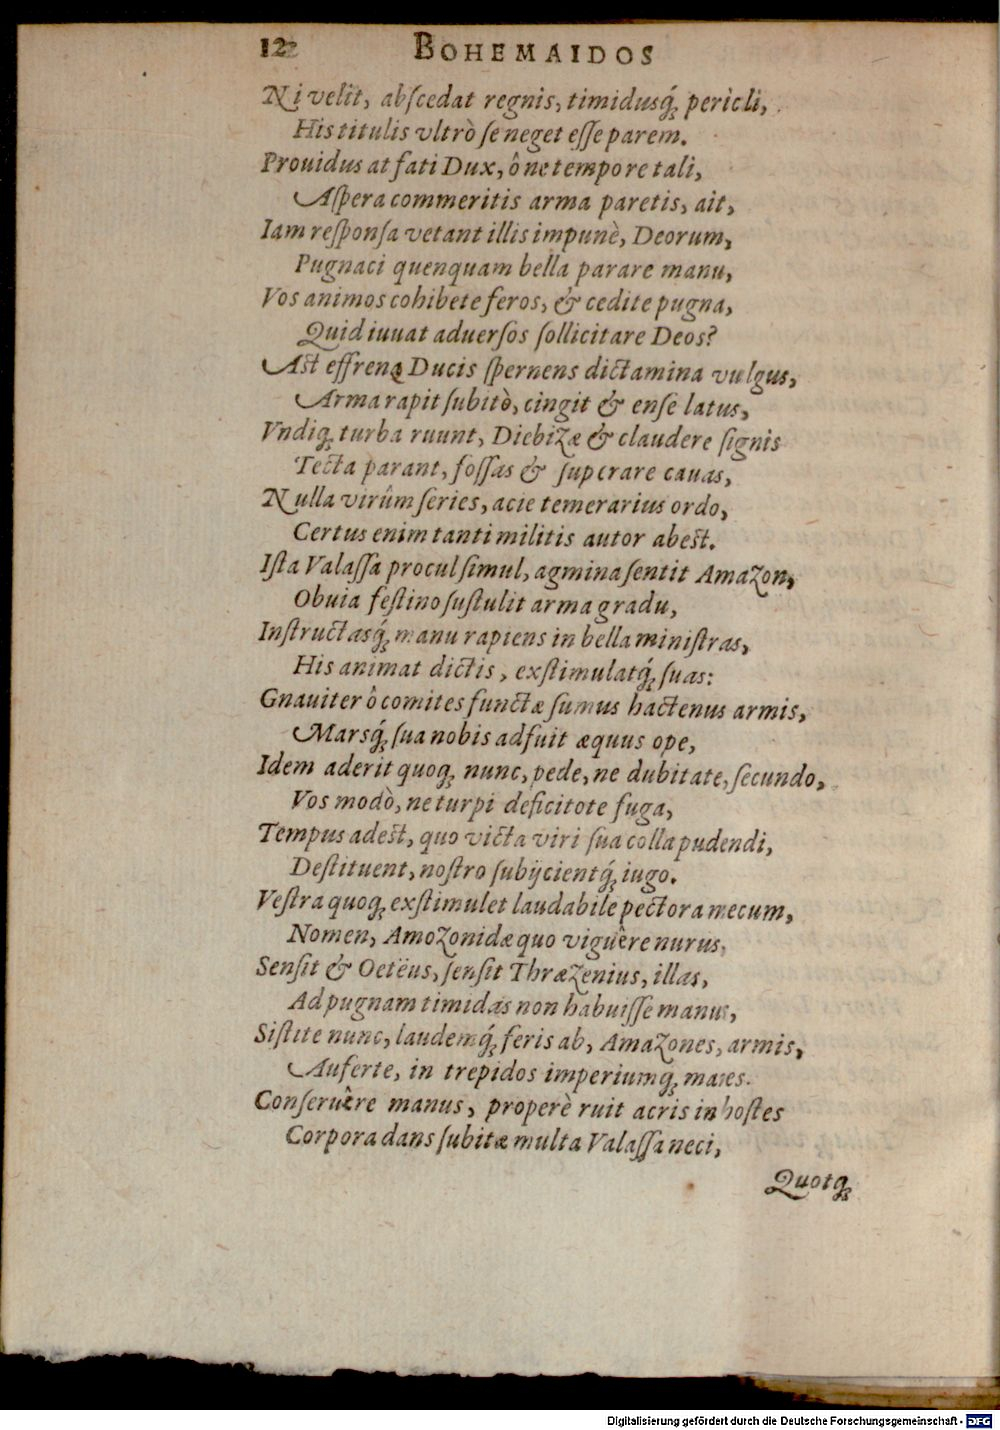 12 BOHEMAIDOS
Ni velit, abſcedat regnis, timiduſq́; pericli,
His titulis vltrò ſe neget eſſe parem.
Prouidus at fati Dux, ô ne tempore tali,
Aſpera commeritis arma paretis, ait,
Iam reſponſa vetant illis impunè, Deorum,
Pugnaci quenquam bella parare manu,
Vos animos cohibete feros, & cedite pugna,
Quid iuuat aduerſos ſollicitare Deos?
Aſt effrenę Ducis ſpernens dictamina vulgus,
Arma rapit ſubitò, cingit & enſe latus,
Vndiq; turba ruunt, Diebizæ & claudere ſignis
Tecta parant, foſſas & ſuperare cauas,
Nulla virûm ſeries, acie temerarius ordo,
Certus enim tanti militis autor abeſt.
Iſta Valaſſa procul ſimul, agmina ſentit Amazon,
Obuia feſtino ſuſtulit arma gradu,
Inſtructaſq́; manu rapiens in bella miniſtras,
His animat dictis, exſtimulatq́; ſuas:
Gnauiter ô comites functæ ſumus hactenus armis,
Marsq́; ſua nobis adfuit æquus ope,
Idem aderit quoq; nunc, pede, ne dubitate, ſecundo,
Vos modò, ne turpi deficitote fuga,
Tempus adeſt, quo victa viri ſua colla pudendi,
Deſtituent, noſtro ſubijcientq́; iugo.
Veſtra quoq; exſtimulet laudabile pectora mecum,
Nomen, Amozonidæ quo viguêre nurus,
Senſit & Oetëus, ſenſit Thræzenius, illas,
Ad pugnam timidas non habuiſſe manus,
Siſtite nunc, laudemq́; feris ab, Amazones, armis,
Auferte, in trepidos imperiumq; mares.
Conſeruêre manus, properè ruit acris in hoſtes
Corpora dans ſubitæ multa Valaſſa neci,
Quotq;
Digitalisierung gefördert durch die Deutsche Forschungsgemeinschaft - DFG